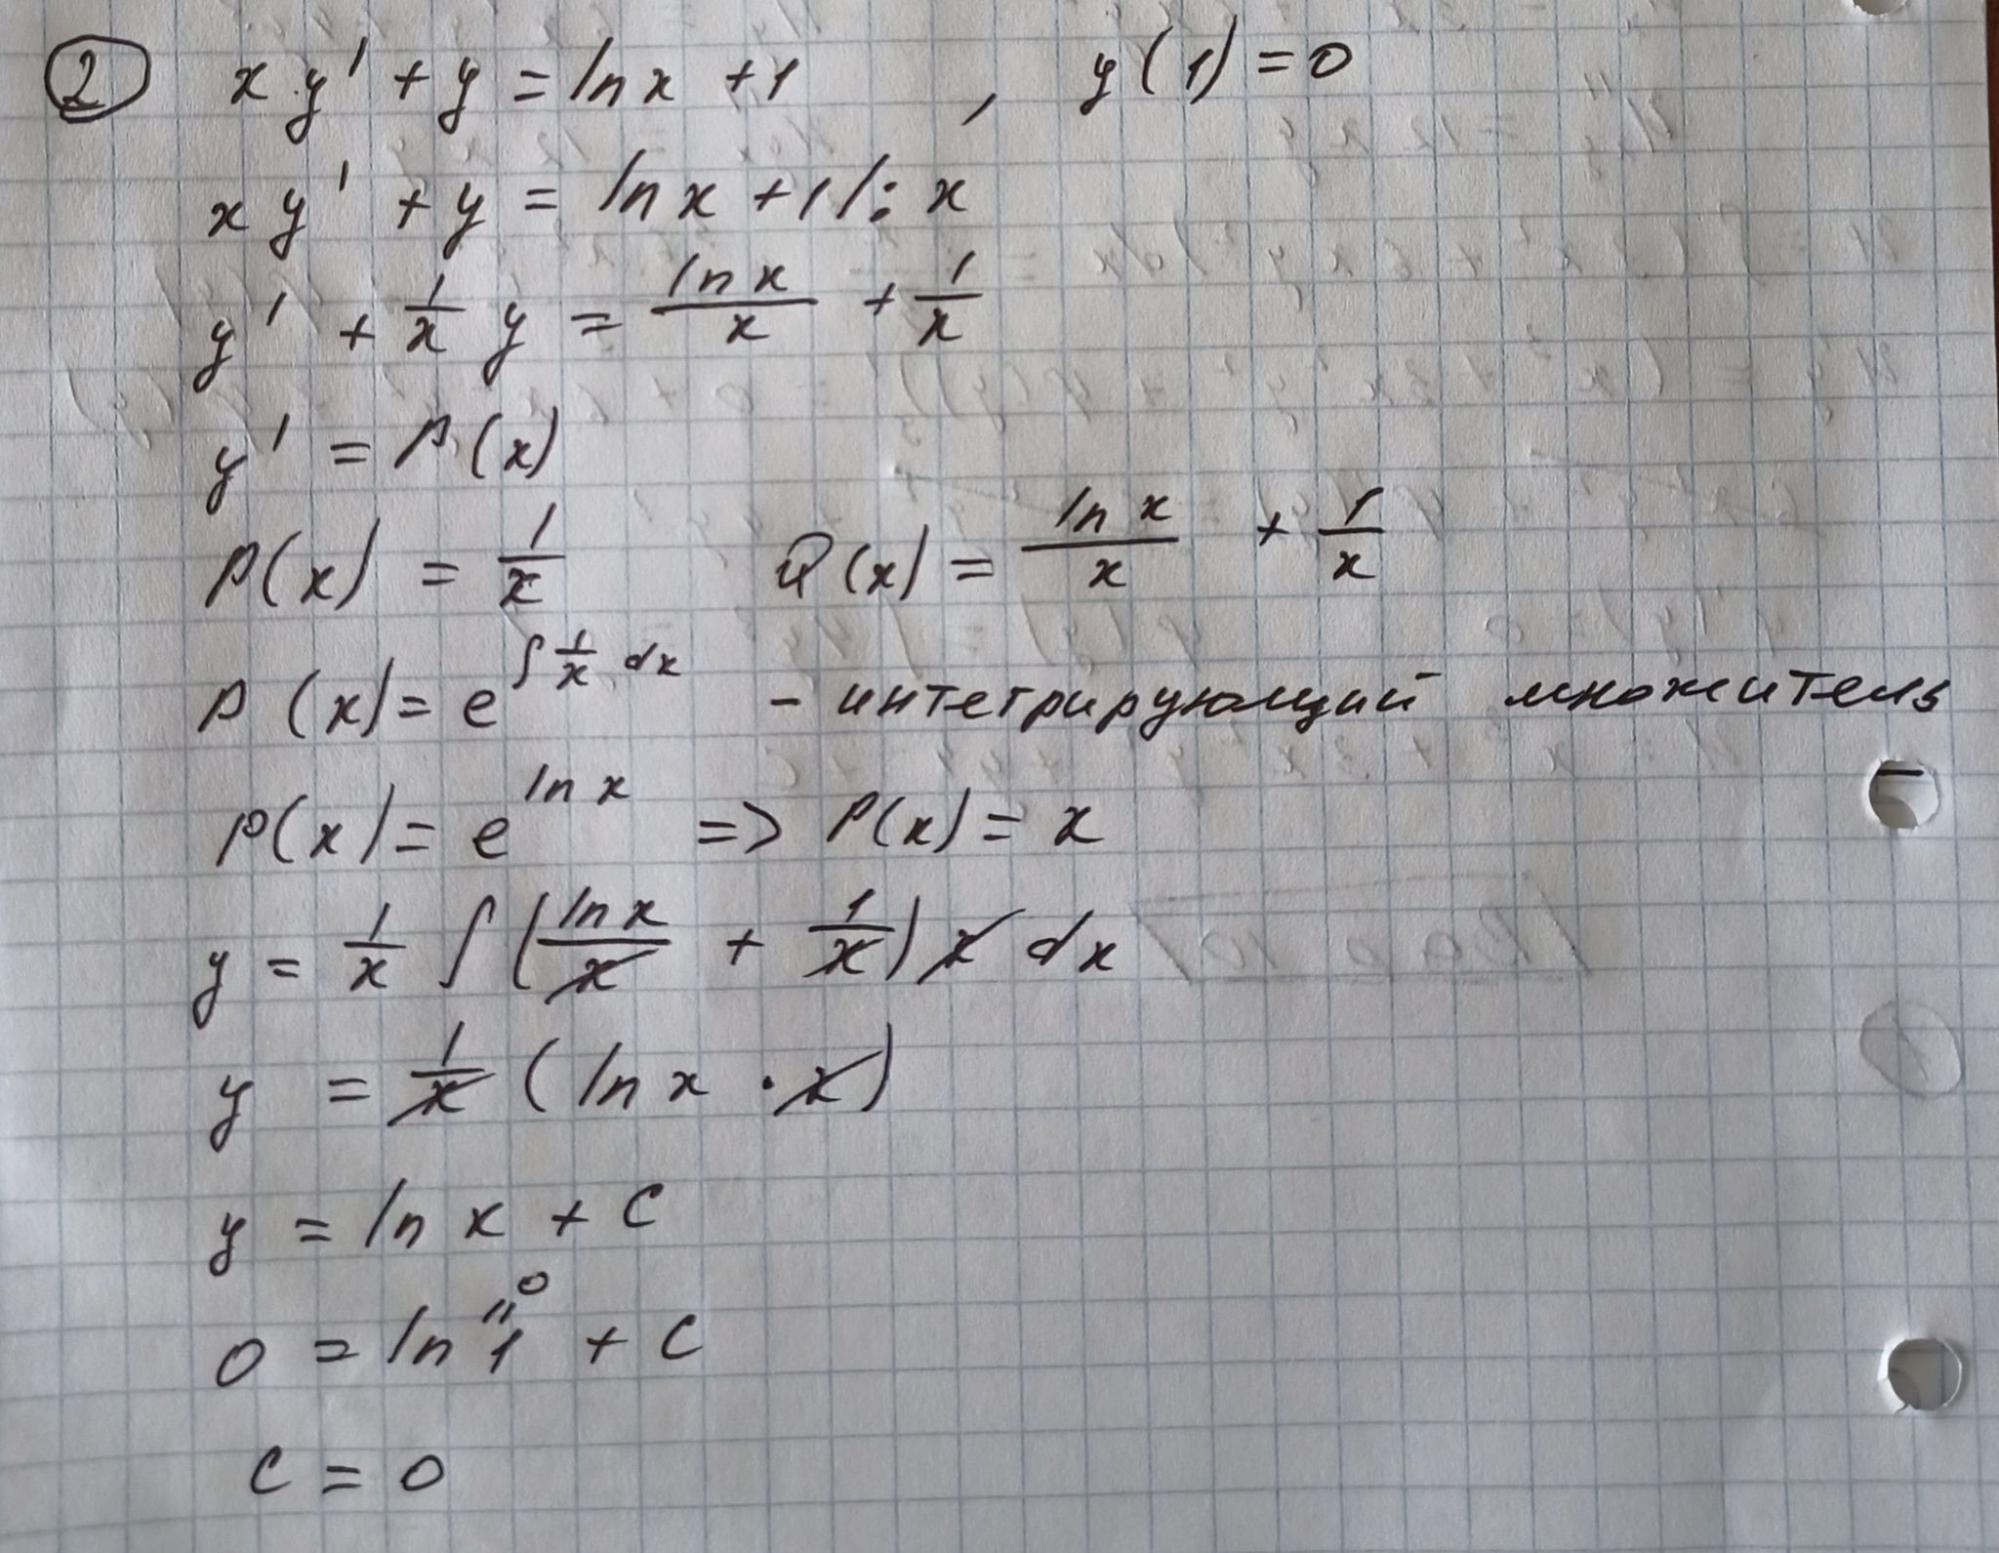 2 xy' + y = ln x + 1 , y(1) = 0
xy' + y = ln x + 1 /: x
y' + 1/x y = ln x / x + 1/x
y' = P(x)
P(x) = 1/x Q(x) = ln x / x + 1/x
P(x) = e^∫ 1/x dx - интегрирующий множитель
P(x) = e^ln x => P(x) = x
y = 1/x ∫ (ln x / x + 1/x) x dx
y = 1/x (ln x · x)
y = ln x + C
0 = ln 1 " 0 + C
C = 0